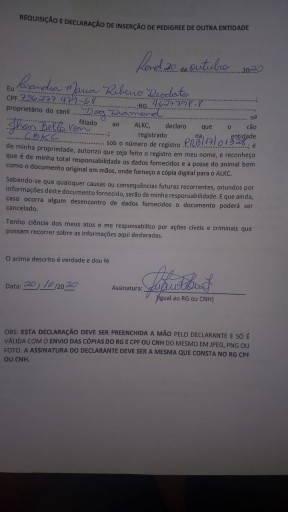 REQUISIÇÃO E DECLARAÇÃO DE INSERÇÃO DE PEDIGREE DE OUTRA ENTIDADE
20 de outubro 2020
Eu Maria Ribeiro
CPF RG
proprietário do canil Dog Diamond nº
filiado ao ALKC, declaro que o cão
registrado na entidade
CBKC sob o número de registro é
de minha propriedade, autorizo que seja feito o registro em meu nome, e reconheço
que é de minha total responsabilidade os dados fornecidos e a posse do animal bem
como o documento original em mãos, onde forneço a cópia digital para o ALKC.
Sabendo-se que quaisquer causas ou consequências futuras recorrentes, oriundos por
informações deste documento fornecido, serão de minha responsabilidade. E que ainda,
caso ocorra algum desencontro de dados fornecidos o documento poderá ser
cancelado.
Tenho ciência dos meus atos e me responsabilizo por ações cíveis e criminais que
possam recorrer sobre as informações aqui declaradas.
O acima descrito é verdade e dou fé
Data: 20/10/2020 Assinatura:
(Igual ao RG ou CNH)
OBS: ESTA DECLARAÇÃO DEVE SER PREENCHIDA A MÃO PELO DECLARANTE E SÓ É
VÁLIDA COM O ENVIO DAS CÓPIAS DO RG E CPF OU CNH DO MESMO EM JPEG, PNG OU
FOTO. A ASSINATURA DO DECLARANTE DEVE SER A MESMA QUE CONSTA NO RG CPF
OU CNH.